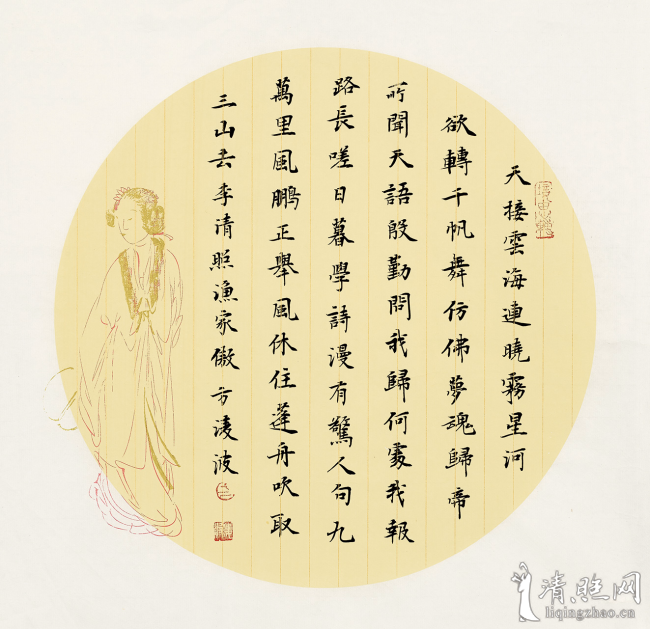 天接雲海連曉霧星河
欲轉千帆舞仿佛夢魂歸帝
所聞天語殷勤問我歸何處我報
路長嗟日暮學詩漫有驚人句九
萬里風鵬正舉風休住蓬舟吹取
三山去李清照漁家傲方淩波
清照网
liqingzhao.cn